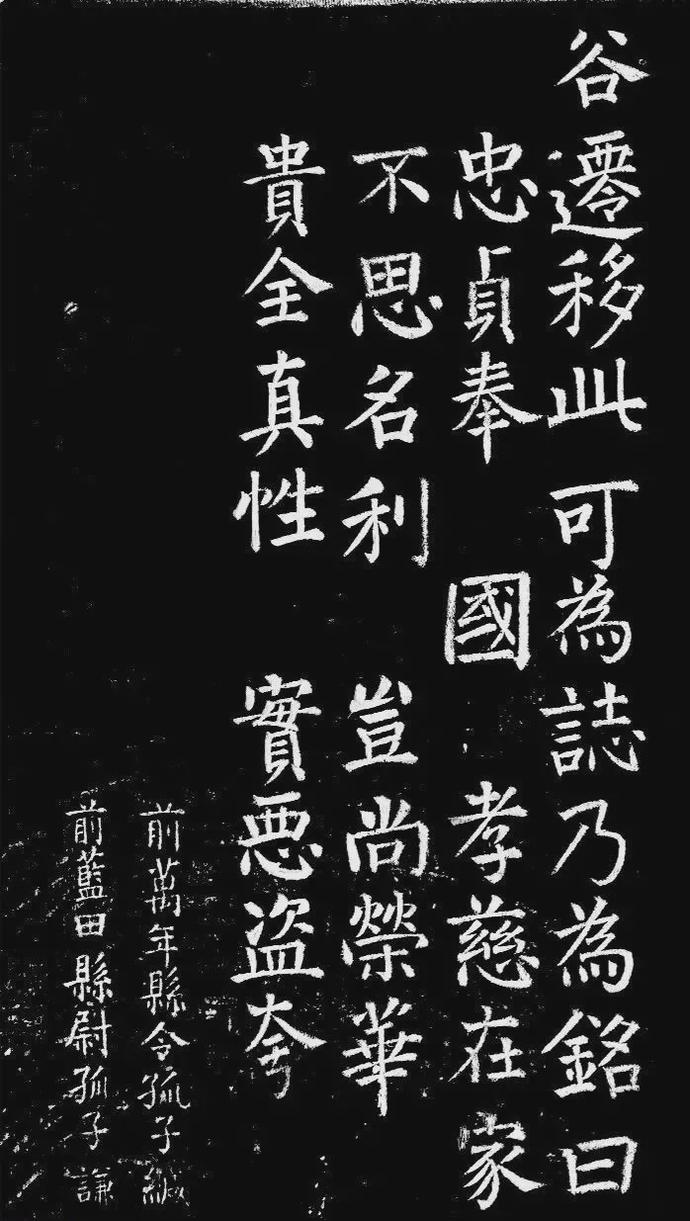 谷遷移此可為誌乃為銘曰
忠貞奉 國 孝慈在家
不思名利 豈尚榮華
貴全真性 實惡盗夸
前萬年縣令孤子緘
前藍田縣尉孤子謙